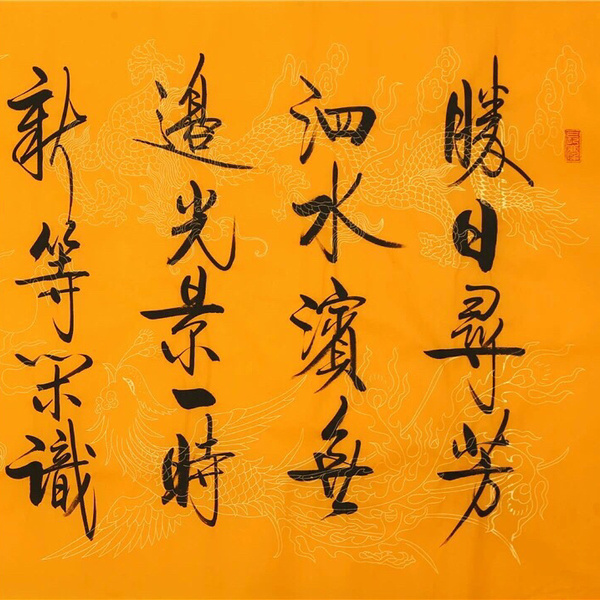 勝日尋芳
泗水濱無
邊光景一時
新等閑識